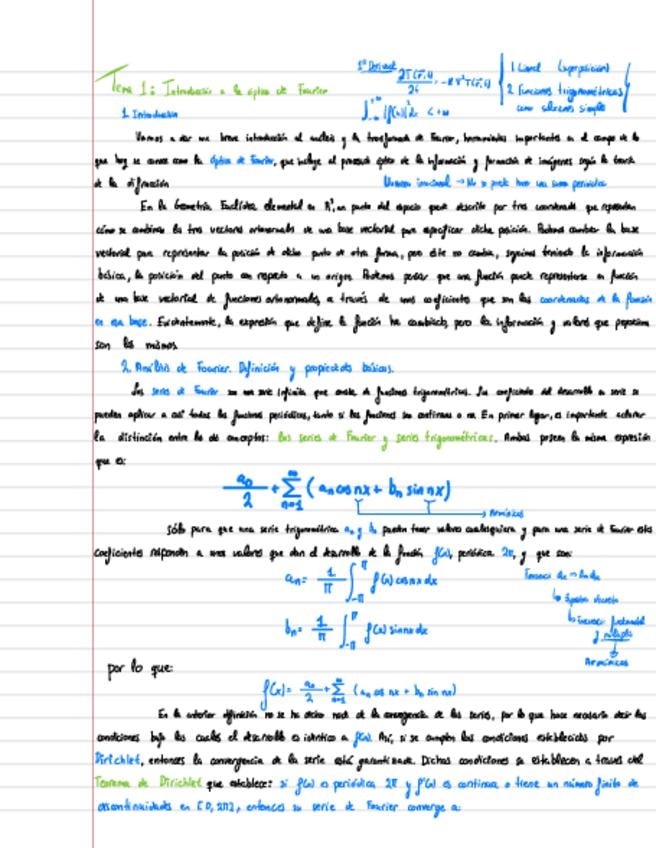 Tema 1: Introducción a la óptica de Fourier
1ª Derivada ∂T(r,t)/∂t = -k∇²T(r,t)
1. Lineal (superposición)
2. Funciones trigonométricas
como soluciones simples
∫ |f(x)|² dx < +∞
1. Introducción
Vamos a dar una breve introducción al análisis y la transformada de Fourier, herramientas importantes en el campo de lo
que hoy se conoce como la óptica de Fourier, que incluye al procesado óptico de la información y formación de imágenes según la teoría
de la difracción
Número irracional → No se puede hacer una suma periódica
En la Geometría Euclídea elemental en R³, un punto del espacio puede describirse por tres coordenadas que representan
cómo se combinan los tres vectores ortonormales de una base vectorial para especificar dicha posición. Podemos cambiar la base
vectorial para representar la posición de dicho punto de otra forma, pero este no cambia, seguimos teniendo la información
básica, la posición del punto con respecto a un origen. Podemos pensar que una función puede representarse en función
de una base vectorial de funciones ortonormales, a través de unos coeficientes que son las coordenadas de la función
en esa base. Evidentemente, la expresión que define la función ha cambiado, pero la información y valores que
son los mismos
2. Análisis de Fourier. Definición y propiedades básicas.
Las series de Fourier son una serie infinita que consta de funciones trigonométricas. Los coeficientes del desarrollo en serie se
pueden aplicar a casi todas las funciones periódicas, tanto si las funciones son continuas o no. En primer lugar, es importante aclarar
la distinción entre los dos conceptos: las series de Fourier y series trigonométricas. Ambas poseen la misma expresión
que es:
a₀/2 + ∑ₙ₌₁^∞ (aₙ cos nx + bₙ sin nx)
→ Armónicos
Sólo para que una serie trigonométrica aₙ y bₙ pueden tener valores cualesquiera y para una serie de Fourier estos
coeficientes responden a unos valores que dan el desarrollo de la función f(x), periódica 2π, y que son:
aₙ = 1/π ∫_{-π}^{π} f(x) cos nx dx
Espectro discreto
bₙ = 1/π ∫_{-π}^{π} f(x) sin nx dx
y múltiplos
Armónicos
por lo que:
f(x) = a₀/2 + ∑ₙ₌₁^∞ (aₙ cos nx + bₙ sin nx)
En la anterior definición no se ha dicho nada de la convergencia de las series, por lo que hace necesario decir las
condiciones bajo las cuales el desarrollo es idéntico a f(x). Así, si se cumplen las condiciones establecidas por
Dirichlet, entonces la convergencia de la serie está garantizada. Dichas condiciones se establecen a través del
Teorema de Dirichlet que establece: si f(x) es periódica 2π y f(x) es continua o tiene un número finito de
discontinuidades en [0,2π], entonces su serie de Fourier converge a: